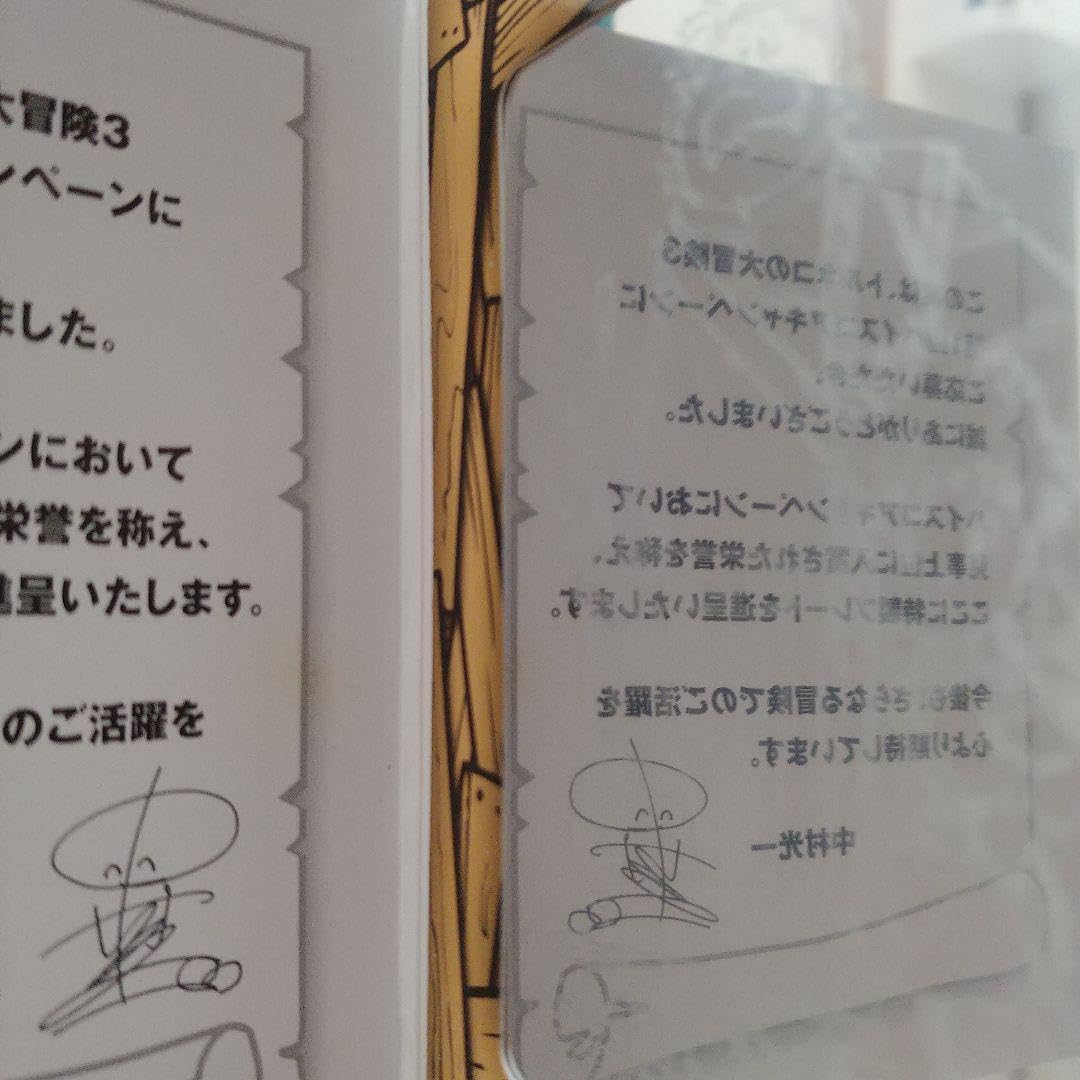 大冒険3
ンペーンに
ました。
ンにおいて
栄誉を称え、
進呈いたします。
のご活躍を
トルネコの大冒険3
ハイスコアキャンペーンに
ご応募いただき、
誠にありがとうございました。
ハイスコアキャンペーンにおいて
見事上位に入賞された栄誉を称え、
ここに特製プレートを進呈いたします。
今後も、さらなる冒険でのご活躍を
心より期待しています。
中村光一